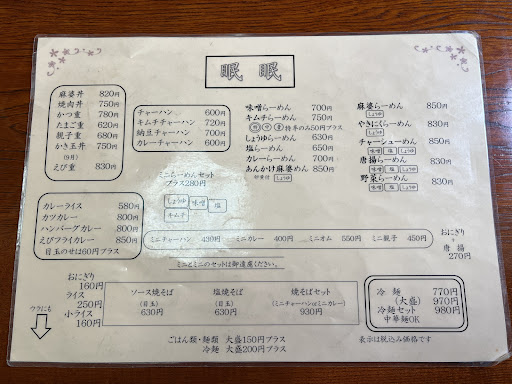 眠眠
麻婆丼 820円
焼肉丼 750円
かつ重 780円
たまご重 620円
親子重 630円
かき玉丼 750円
(9月)
えび重 830円
チャーハン 600円
キムチチャーハン 720円
納豆チャーハン 700円
カレーチャーハン 600円
ミニらーめんセット
プラス280円
しょうゆ 味噌 塩
キムチ
味噌らーめん 700円
キムチらーめん 750円
特辛のみ50円プラス
しょうゆらーめん 630円
塩らーめん 650円
カレーらーめん 700円
あんかけ麻婆めん 850円
しょうゆ
麻婆らーめん 850円
しょうゆ
やきにくらーめん 830円
しょうゆ
チャーシューめん 850円
味噌 塩 しょうゆ
唐揚らーめん 830円
味噌 塩 しょうゆ
野菜らーめん 830円
味噌 塩 しょうゆ
カレーライス 580円
カツカレー 800円
ハンバーグカレー 800円
えびフライカレー 850円
目玉のせは60円プラス
ミニチャーハン 430円 ミニカレー 400円 ミニオム 550円 ミニ親子 450円
ミニとミニのセットは御遠慮ください。
おにぎり
唐揚
270円
おにぎり
160円
ライス
250円
小ライス
160円
ウラにも
ソース焼そば
(目玉)
630円
塩焼そば
(目玉)
630円
焼そばセット
(ミニチャーハンorミニカレー)
930円
冷麺 770円
(大盛) 970円
冷麺セット 980円
中華麺OK
ごはん類・麺類 大盛150円プラス
冷麺 大盛200円プラス
表示は税込み価格です